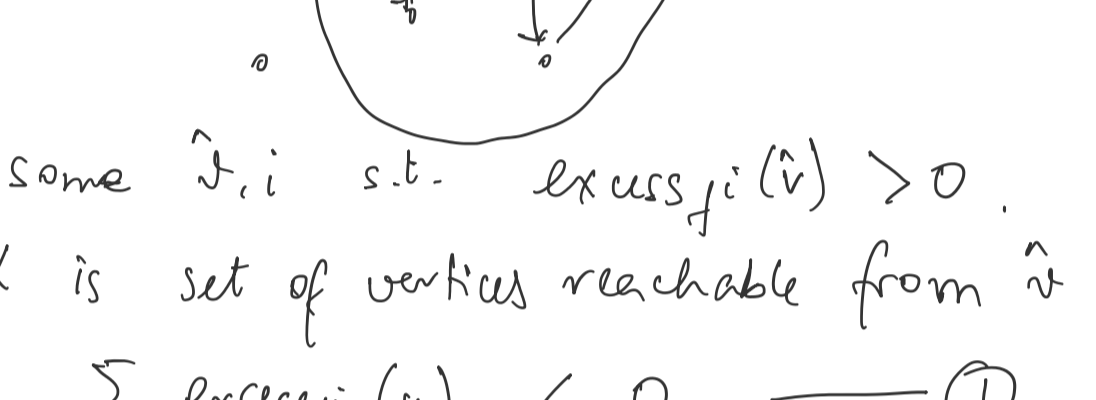 some v̂, i s.t. excess_fi(v̂) > 0.
is set of vertices reachable from v̂